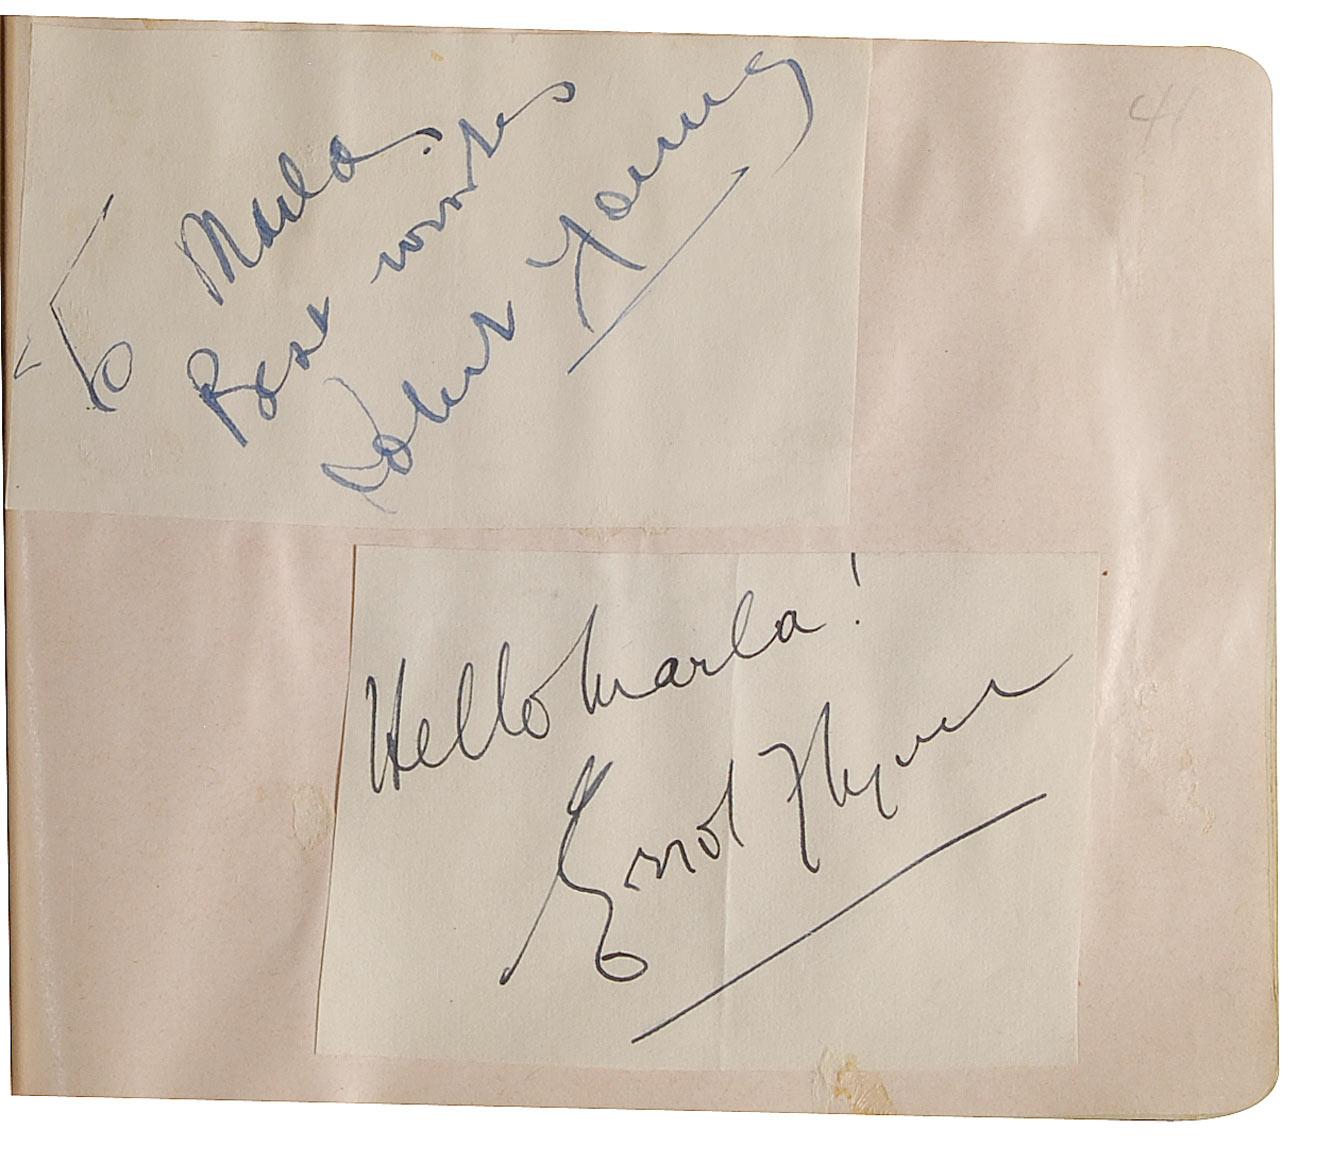 41
To Marla.
Best wishes
Robert Young
Hello Marla!
Errol Flynn